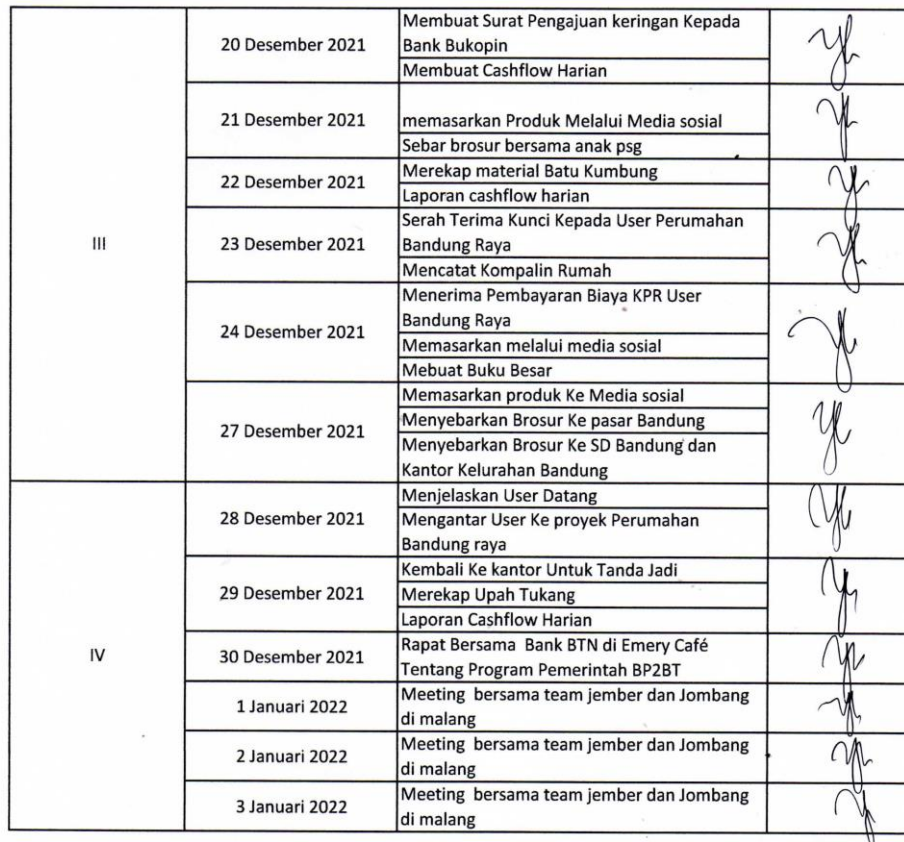 III
20 Desember 2021
Membuat Surat Pengajuan keringan Kepada
Bank Bukopin
Membuat Cashflow Harian
21 Desember 2021
memasarkan Produk Melalui Media sosial
Sebar brosur bersama anak psg
22 Desember 2021
Merekap material Batu Kumbung
Laporan cashflow harian
23 Desember 2021
Serah Terima Kunci Kepada User Perumahan
Bandung Raya
Mencatat Kompalin Rumah
24 Desember 2021
Menerima Pembayaran Biaya KPR User
Bandung Raya
Memasarkan melalui media sosial
Mebuat Buku Besar
27 Desember 2021
Memasarkan produk Ke Media sosial
Menyebarkan Brosur Ke pasar Bandung
Menyebarkan Brosur Ke SD Bandung dan
Kantor Kelurahan Bandung
IV
28 Desember 2021
Menjelaskan User Datang
Mengantar User Ke proyek Perumahan
Bandung raya
29 Desember 2021
Kembali Ke kantor Untuk Tanda Jadi
Merekap Upah Tukang
Laporan Cashflow Harian
30 Desember 2021
Rapat Bersama Bank BTN di Emery Café
Tentang Program Pemerintah BP2BT
1 Januari 2022
Meeting bersama team jember dan Jombang
di malang
2 Januari 2022
Meeting bersama team jember dan Jombang
di malang
3 Januari 2022
Meeting bersama team jember dan Jombang
di malang